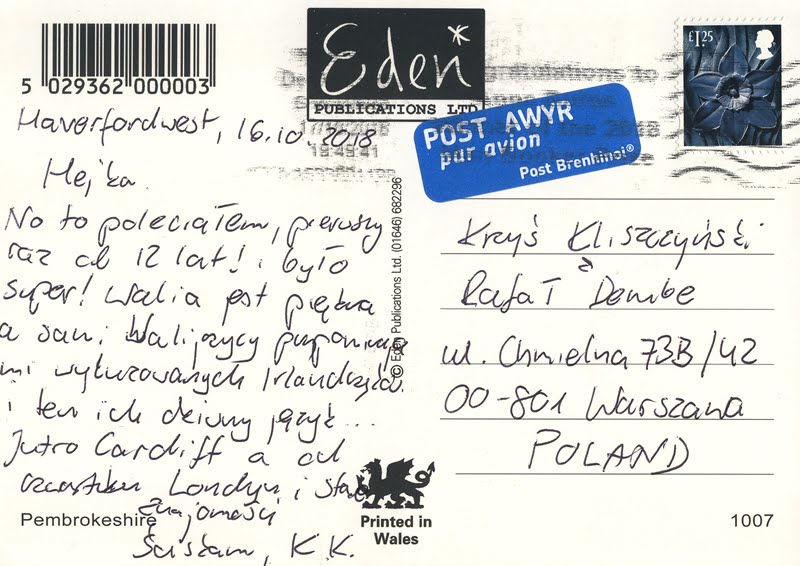 5 029362 000003
Eden
PUBLICATIONS LTD
£1.25
POST AWYR
par avion
Post Brenhinol®
Haverfordwest, 16.10.2018
Hejka.
No to poleciałem, pierwszy
raz od 12 lat! i było
super! Walia jest piękna
a sami Walijczycy przypominają
mi wyluzowanych Irlandczyków
i ten ich dziwny język...
Jutro Cardiff a od
czwartku Londyn i stare
znajomości
Ściskam, K.K.
© Eden Publications Ltd. (01646) 682296
Krzyś Kliszczyński
z
Rafał Dembe
ul. Chmielna 73B/42
00-801 Warszawa
POLAND
Pembrokeshire
Printed in
Wales
1007